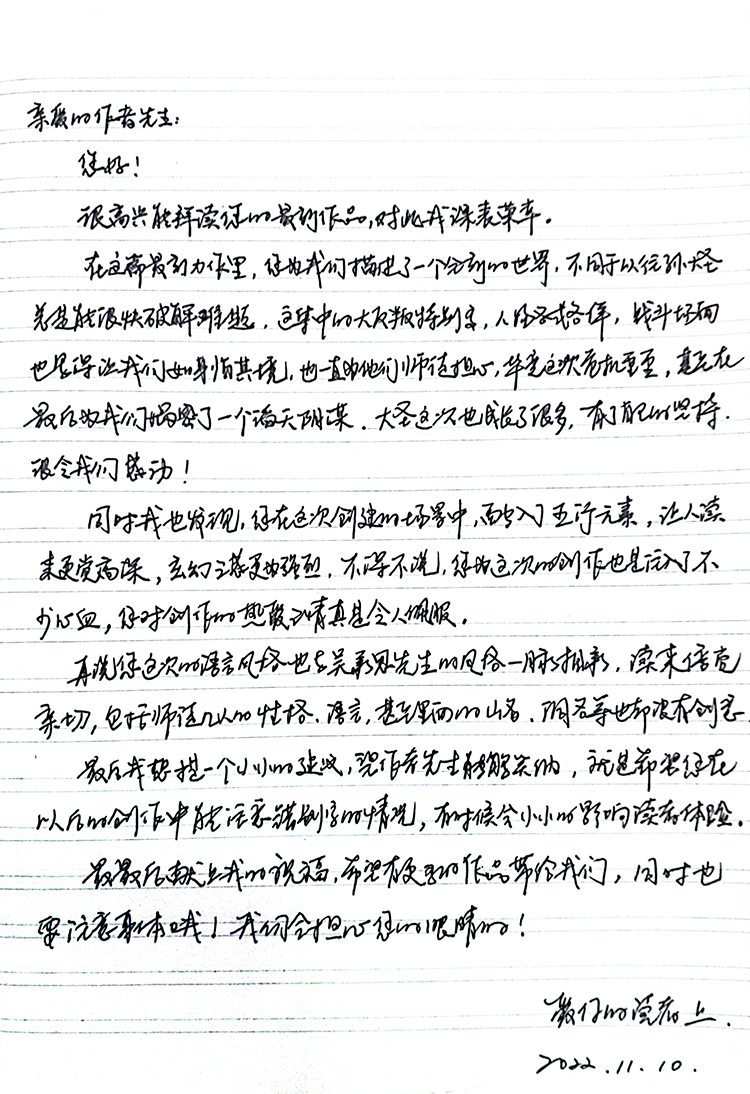 亲爱的作者先生：
您好！
很高兴能拜读您的最新作品，对此我深表荣幸。
在这部最新力作里，您为我们描述了一个全新的世界，不同于以往孙大圣
总是能很快破解难题，这集中的大反派特别多，人物各式各样，战斗场面
也写得让我们如身临其境，也一直为他们师徒担心，毕竟这次危机重重，甚至在
最后为我们揭密了一个滔天阴谋．大圣这次也成长了很多，有了自己的坚持．
很令我们感动！
同时我也发现，您在这次创建的场景中，融入了五行元素，让人读
来更觉高深，玄幻之感更为强烈．不得不说，您为这次的创作也是注入了不
少心血，您对创作的热爱之情真是令人佩服。
再说您这次的语言风格也与吴承恩先生的风格一脉相承，读来倍觉
亲切，包括师徒几人的性格、语言，甚至里面的山名、洞名等也都很有创意．
最后我想提一个小小的建议，望作者先生能够采纳，就是希望您在
以后的创作中能注意错别字的情况，有时候会小小的影响读者体验。
最最后献上我的祝福，希望有更多的作品带给我们，同时也
要注意身体哦！我们会担心您的眼睛的！
敬仰的读者上．
2022.11.10.